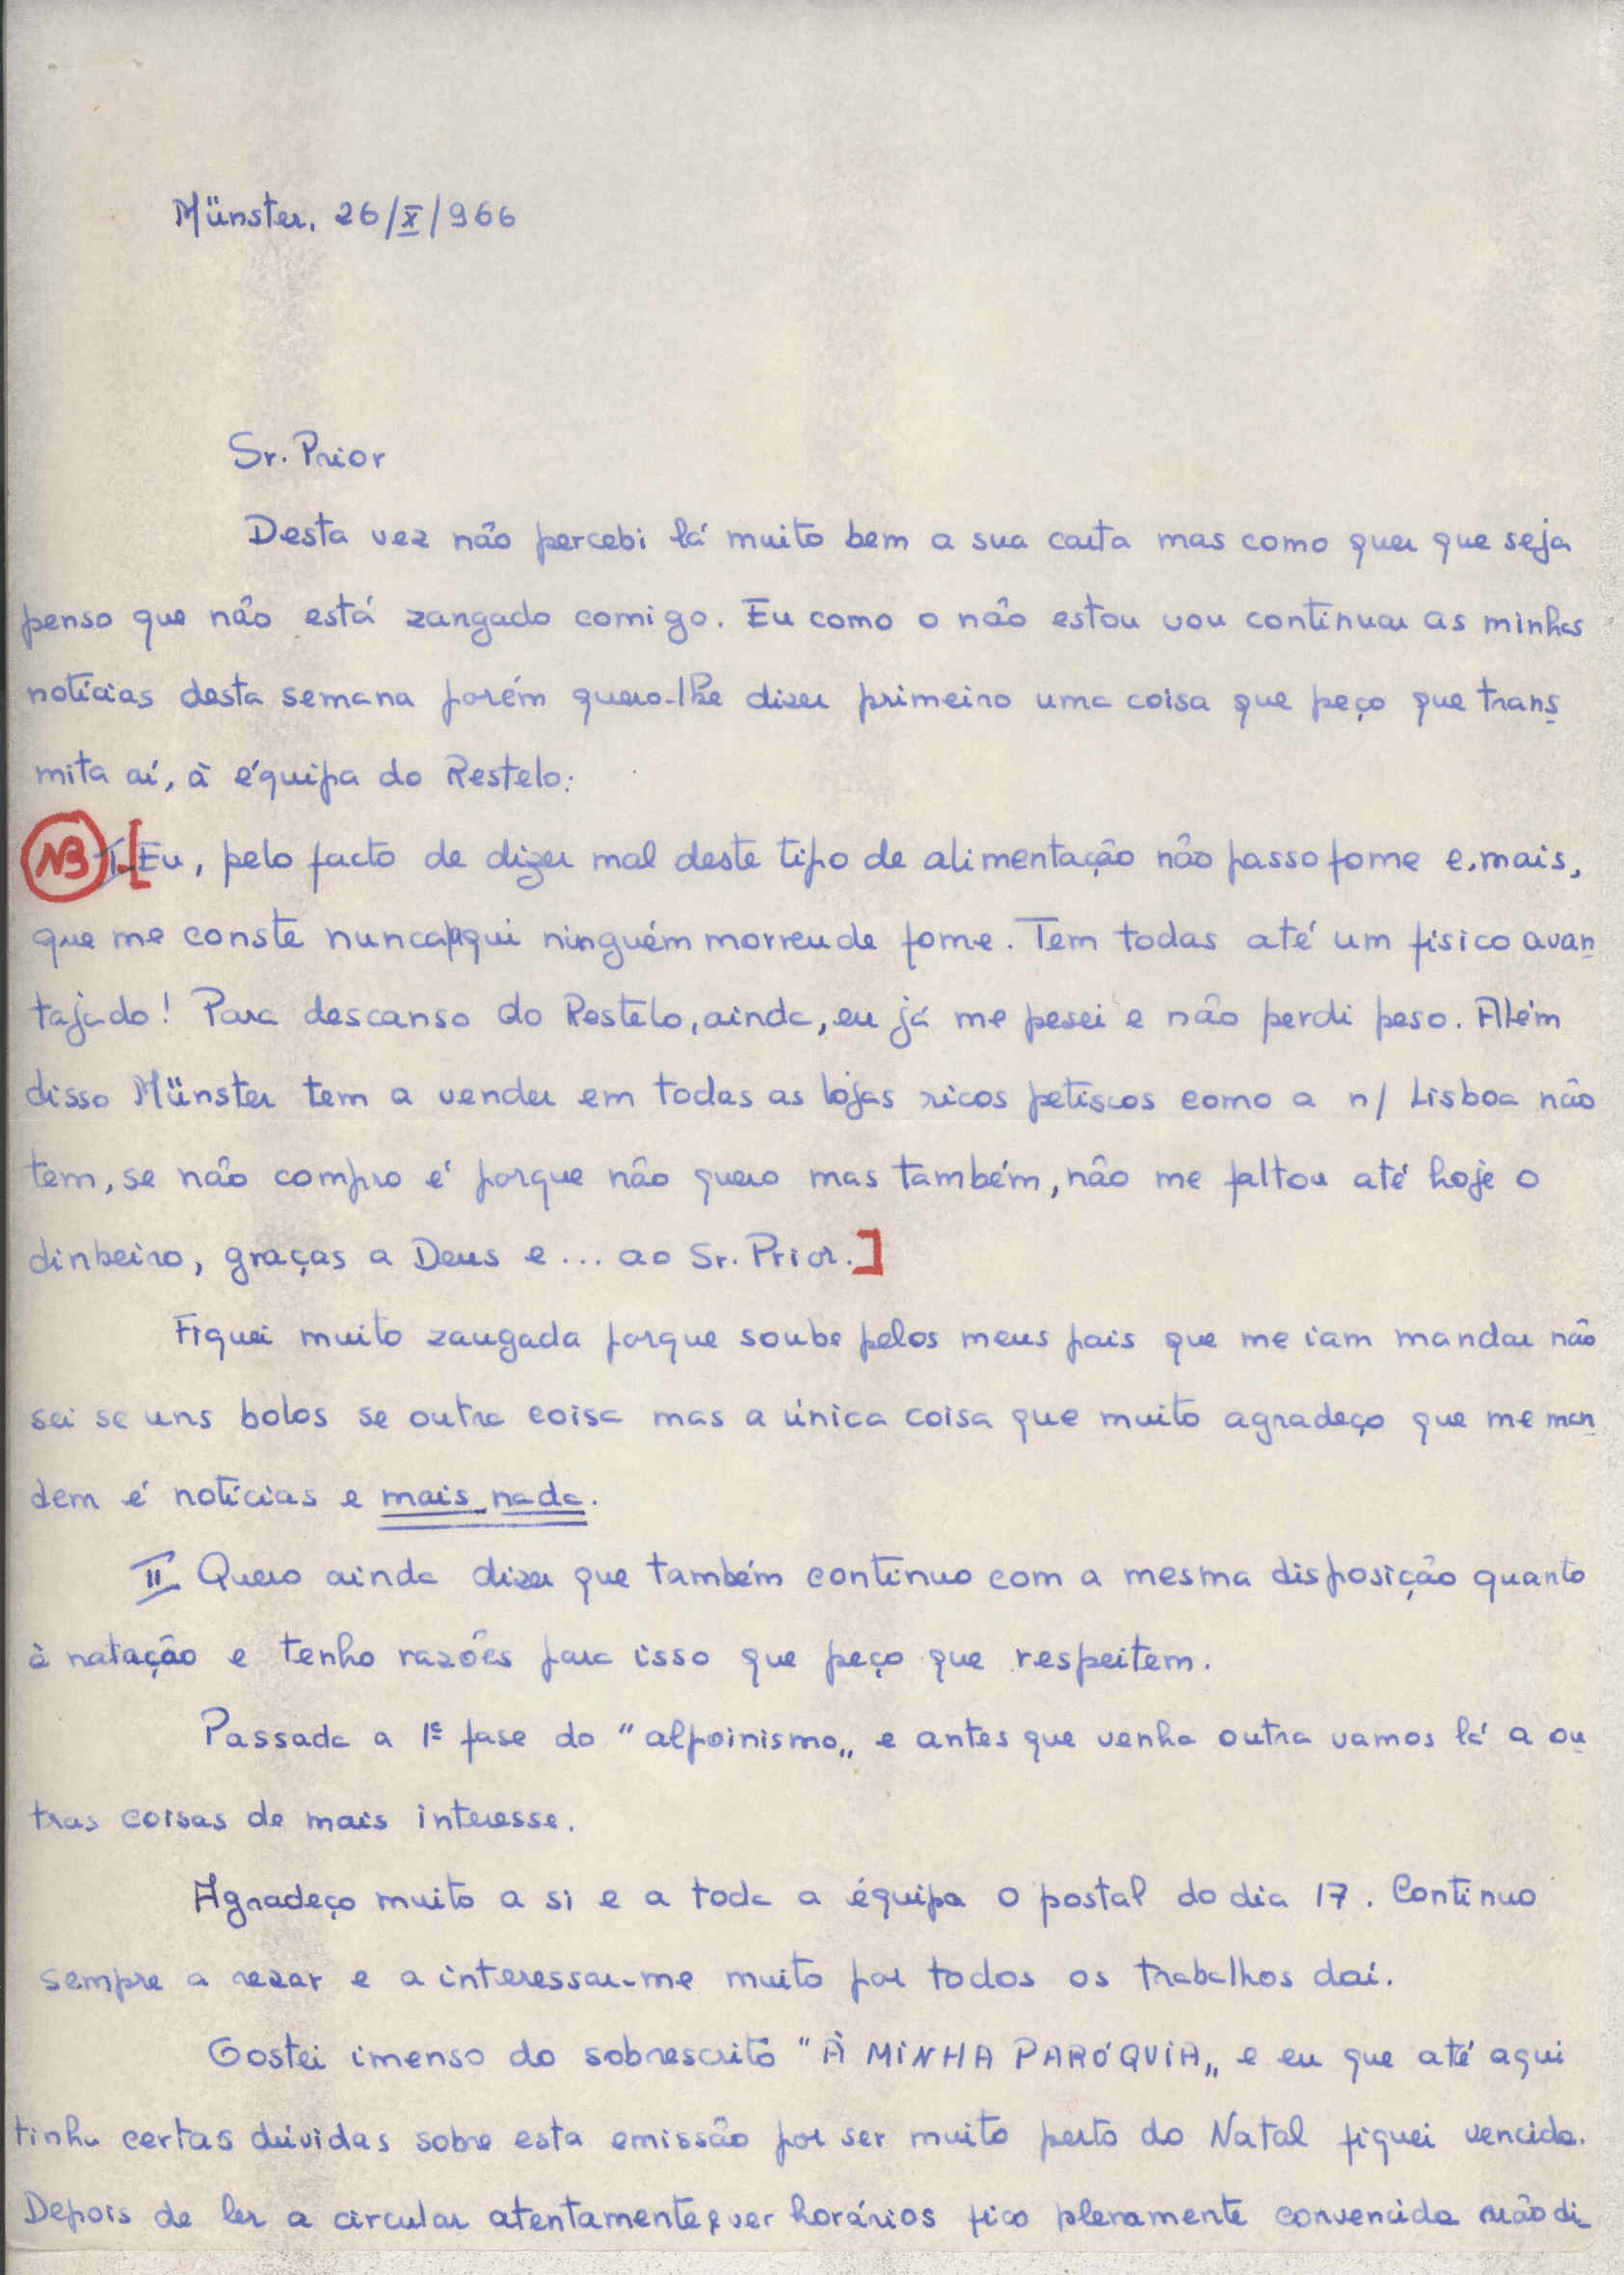 Münster, 26/X/966
Sr. Prior
Desta vez não percebi lá muito bem a sua carta mas como quer que seja
penso que não está zangado comigo. Eu como o não estou vou continuar as minhas
notícias desta semana porém quero-lhe dizer primeiro uma coisa que peço que trans
mita aí, à équipa do Restelo:
NB I-[Eu, pelo facto de dizer mal deste tipo de alimentação não passo fome e, mais,
que me conste nunca aqui ninguém morreu de fome. Tem todas até um fisico avan
tajado! Para descanso do Restelo, ainda, eu já me pesei e não perdi peso. Além
disso Münster tem a vender em todas as lojas ricos petiscos como a n/ Lisboa não
tem, se não compro é porque não quero mas também, não me faltou até hoje o
dinheiro, graças a Deus e ... ao Sr. Prior.]
Fiquei muito zangada porque soube pelos meus pais que me iam mandar não
sei se uns bolos se outra coisa mas a única coisa que muito agradeço que me man
dem é notícias e mais nada.
II Quero ainda dizer que também continuo com a mesma disposição quanto
à natação e tenho razões para isso que peço que respeitem.
Passada a 1ª fase do "alpoinismo„ e antes que venha outra vamos lá a ou
tras coisas de mais interesse.
Agradeço muito a si e a toda a équipa o postal do dia 17. Continuo
sempre a rezar e a interessar-me muito por todos os trabalhos daí.
Gostei imenso do sobrescrito "À MINHA PARÓQUIA„ e eu que até aqui
tinha certas dúvidas sobre esta emissão por ser muito perto do Natal fiquei vencida.
Depois de ler a circular atentamente e ver horários fico plenamente convencida não di-